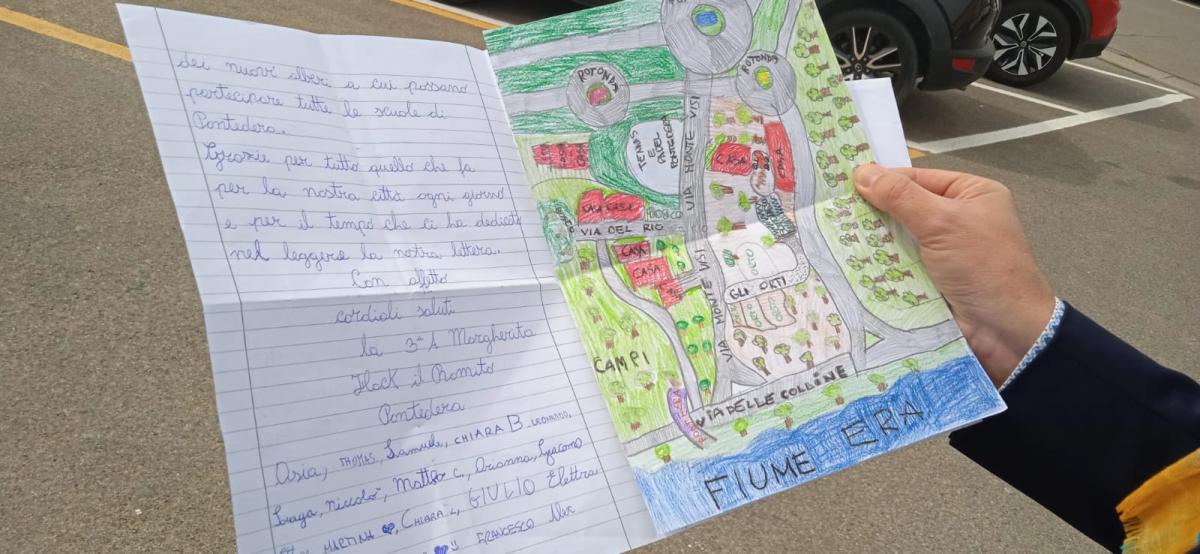 dei nuovi alberi a cui possano
partecipare tutte le scuole di
Pontedera.
Grazie per tutto quello che fa
per la nostra città ogni giorno
e per il tempo che ci ha dedicato
nel leggere la nostra lettera.
Con affetto
cordiali saluti
la 3ª A Margherita
Hack il Romito
Pontedera
Asia, THOMAS, Samuele, CHIARA B. LEONARDO,
Niccolò, Matteo C., Arianna, Giacomo
MARTINA, CHIARA L, GIULIO Elettra
FRANCESCO
ROTONDA
ROTONDA
TENNIS
E
PADEL
PONTEDERA
VIA MONTE VISI
CASA
CASA
CASA
CASA
CASA CASA
VIA DEL RIO
CASA
CASA
ORTO
GLI ORTI
ORTO
ORTO
VIA MONTE VISI
CAMPI
VIA DELLE COLLINE
FIUME ERA